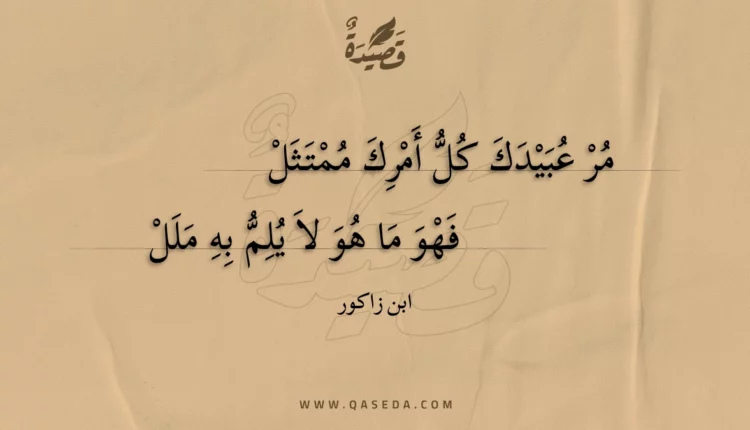 قَصِيدَةٌ
مُرْ عُبَيْدَكَ كُلُّ أَمْرِكَ مُمْتَثَلْ
فَهْوَ مَا هُوَ لاَ يُلِمُّ بِهِ مَلَلْ
ابن زاكور
WWW.QASEDA.COM